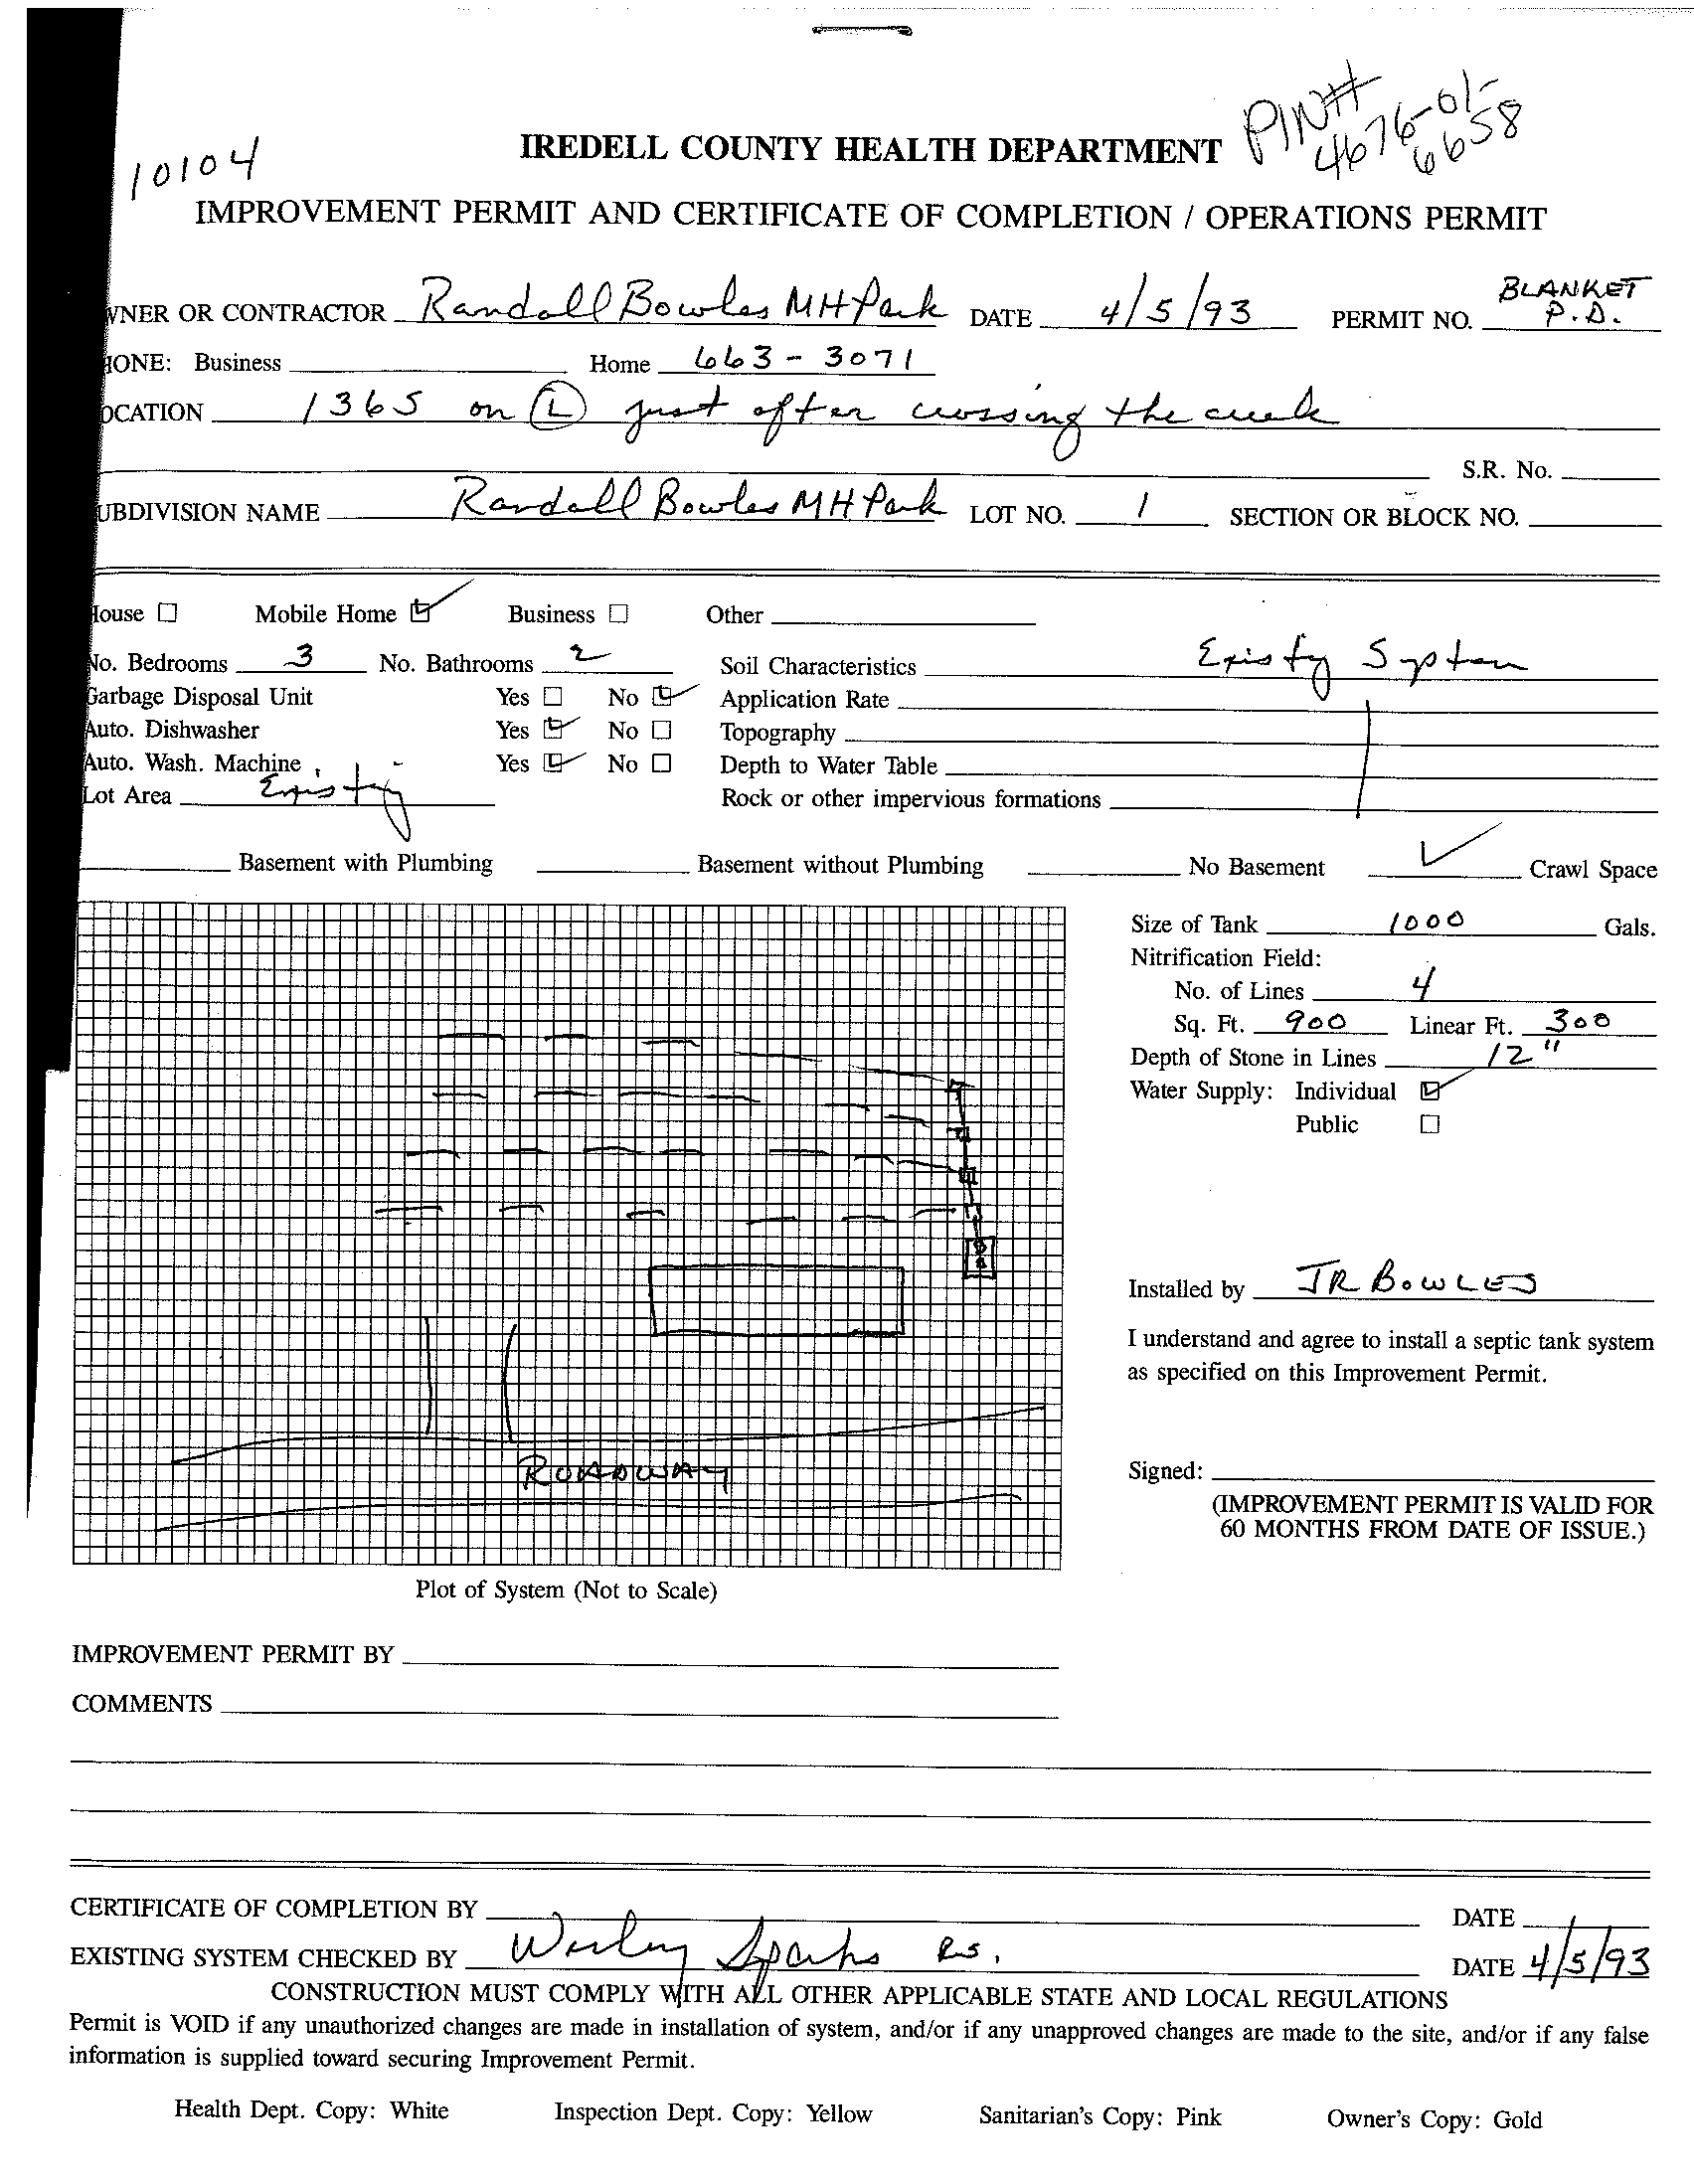 PIN# 4676-01-6658
10104
IREDELL COUNTY HEALTH DEPARTMENT
IMPROVEMENT PERMIT AND CERTIFICATE OF COMPLETION / OPERATIONS PERMIT
WNER OR CONTRACTOR Randall Bowles MH Park DATE 4/5/93 PERMIT NO. BLANKET P.D.
HONE: Business Home 663-3071
OCATION 1365 on L just after crossing the creek
S.R. No.
UBDIVISION NAME Randall Bowles MH Park LOT NO. 1 SECTION OR BLOCK NO.
House Mobile Home Business Other
No. Bedrooms 3 No. Bathrooms 2 Soil Characteristics Existing System
Garbage Disposal Unit Yes No Application Rate
Auto. Dishwasher Yes No Topography
Auto. Wash. Machine Yes No Depth to Water Table
Lot Area Existing Rock or other impervious formations
Basement with Plumbing Basement without Plumbing No Basement Crawl Space
Size of Tank 1000 Gals.
Nitrification Field:
No. of Lines 4
Sq. Ft. 900 Linear Ft. 300
Depth of Stone in Lines 12"
Water Supply: Individual
Public
Installed by JR BOWLES
I understand and agree to install a septic tank system
as specified on this Improvement Permit.
ROADWAY
Signed:
(IMPROVEMENT PERMIT IS VALID FOR
60 MONTHS FROM DATE OF ISSUE.)
Plot of System (Not to Scale)
IMPROVEMENT PERMIT BY
COMMENTS
CERTIFICATE OF COMPLETION BY DATE
EXISTING SYSTEM CHECKED BY Wesley Sparks R.S. DATE 4/5/93
CONSTRUCTION MUST COMPLY WITH ALL OTHER APPLICABLE STATE AND LOCAL REGULATIONS
Permit is VOID if any unauthorized changes are made in installation of system, and/or if any unapproved changes are made to the site, and/or if any false
information is supplied toward securing Improvement Permit.
Health Dept. Copy: White Inspection Dept. Copy: Yellow Sanitarian's Copy: Pink Owner's Copy: Gold